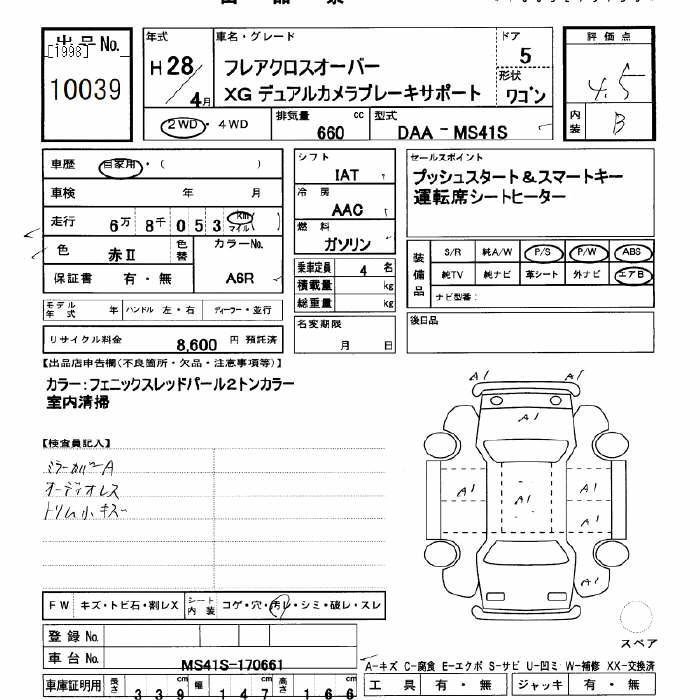 出品No.
[1998]
10039
年式
H28/4月
車名・グレード
フレアクロスオーバー
XG デュアルカメラブレーキサポート
ドア
5
形状
ワゴン
2WD・4WD
排気量 cc
660
型式
DAA-MS41S
評価点
4.5
内装
B
車歴 自家用・( )
車検 年 月
走行 6万 8千 053 km マイル
色 赤Ⅱ
色替
カラーNo.
A6R
保証書 有・無
モデル年式 年 ハンドル 左・右 ディーラー・並行
リサイクル料金 8,600 円 預託済
シフト
IAT
冷房
AAC
燃料
ガソリン
乗車定員 4 名
積載量 kg
総重量 kg
名変期限
月 日
セールスポイント
プッシュスタート&スマートキー
運転席シートヒーター
装備品
S/R 純A/W P/S P/W ABS
純TV 純ナビ 革シート 外ナビ エアB
ナビ型番:
後日品
【出品店申告欄(不良箇所・欠品・注意事項等)】
カラー:フェニックスレッドパール2トンカラー
室内清掃
【検査員記入】
ミラーカバーA
オーディオレス
トリム小キズ
A1 A1
A1
A1 A1 A1
A1
A1
FW キズ・トビ石・割レX シート内装 コゲ・穴・汚レ・シミ・破レ・スレ
スペア
登録No.
車台No. MS41S-170661
A-キズ C-腐食 E-エクボ S-サビ U-凹ミ W-補修 XX-交換済
車庫証明用 長さ 339 幅 147 高さ 166
工具 有・無 ジャッキ 有・無